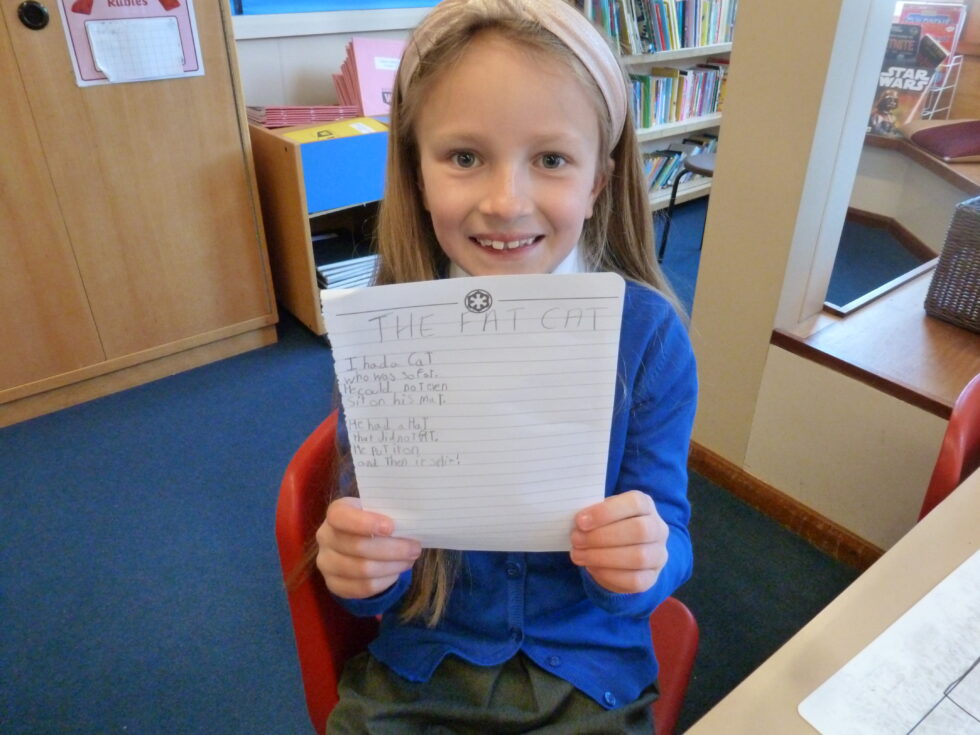 Rubies
STAR
WARS
THE FAT CAT
I had a Cat
who was so fat.
He could not even
Sit on his mat.
He had a Hat
that did not fit.
He put it on
and then it split!